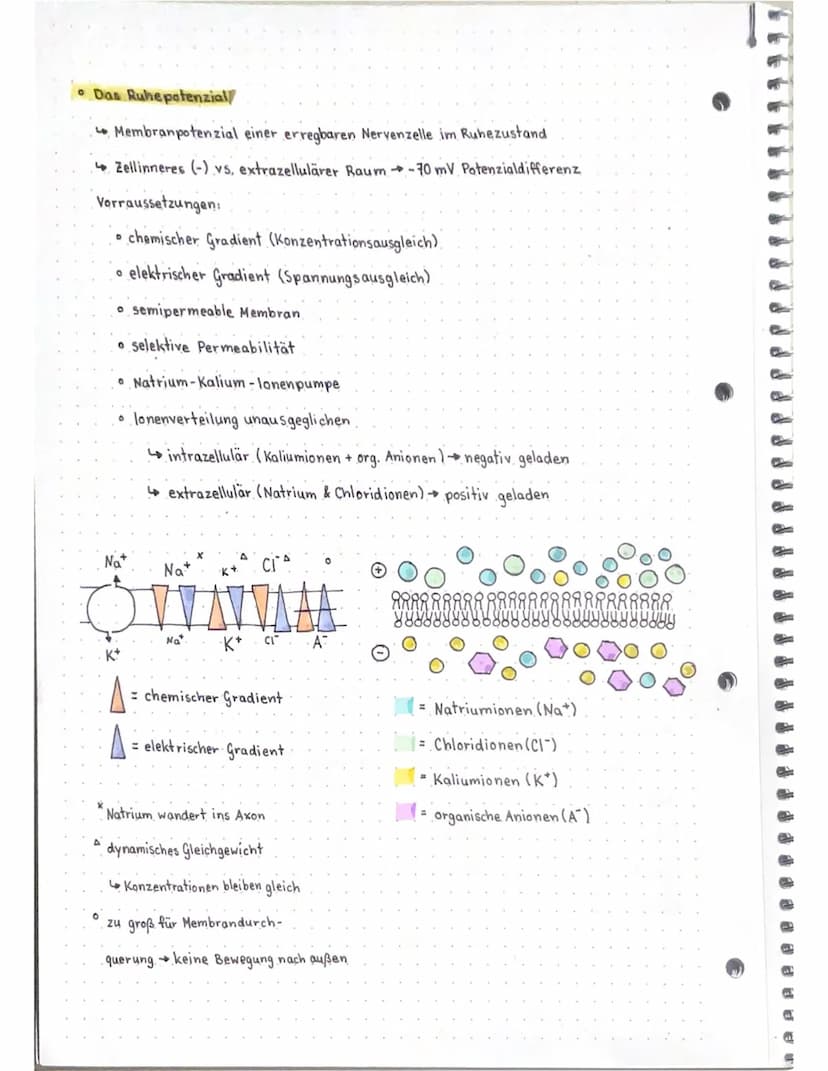 ° Das Ruhepotenzial
↳ Membranpotenzial einer erregbaren Nervenzelle im Ruhezustand
↳ Zellinneres (-) vs. extrazellulärer Raum → -70 mV Potenzialdifferenz
Vorraussetzungen:
° chemischer Gradient (Konzentrationsausgleich)
° elektrischer Gradient (Spannungsausgleich)
° semipermeable Membran
° selektive Permeabilität
° Natrium-Kalium-Ionenpumpe
° Ionenverteilung unausgeglichen
↳ intrazellulär (Kaliumionen + org. Anionen) → negativ geladen
↳ extrazellulär (Natrium & Chloridionen) → positiv geladen
Na⁺ Na⁺ x K⁺ △ Cl⁻ △ °
K⁺ Na⁺ K⁺ Cl⁻ A⁻
+
-
= chemischer Gradient
= elektrischer Gradient
= Natriumionen (Na⁺)
= Chloridionen (Cl⁻)
= Kaliumionen (K⁺)
= organische Anionen (A⁻)
x Natrium wandert ins Axon
△ dynamisches Gleichgewicht
↳ Konzentrationen bleiben gleich
° zu groß für Membrandurch-
querung → keine Bewegung nach außen